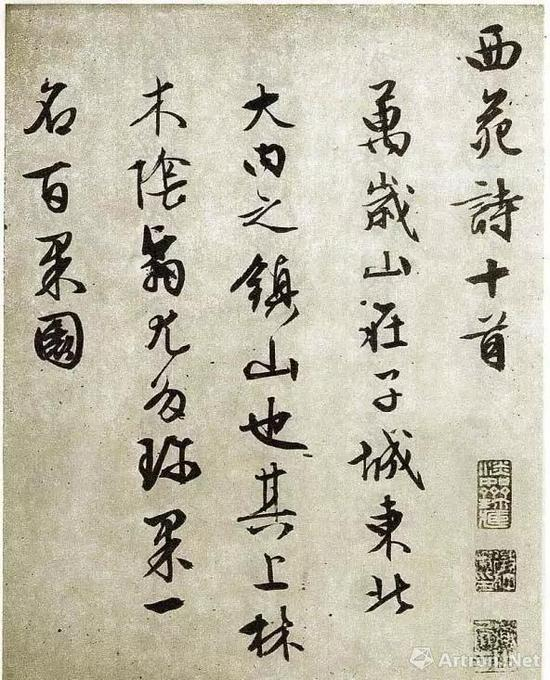 西苑詩十首
萬歲山在子城東北
大内之鎮山也其上林
木陰翳尤多珎果一
名百果園
Artron.Net